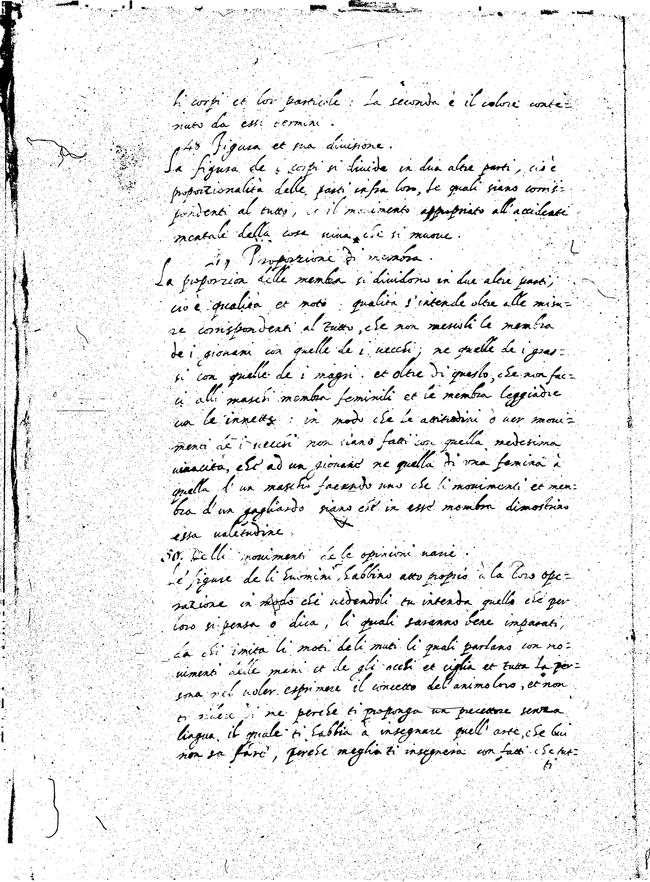 li corpi et lor particole : La seconda è il colore conte=
nuto da essi termini .
48 Figura et sua divisione .
La figura de i corpi si divide in dua altre parti, cioè
proporzionalità delle parti infra loro, le quali siano corris=
pondenti al tutto, et il movimento appropriato all'accidente
mentale della cosa viva, che si muove .
49 Proporzione di membra .
La proporzion delle membra si dividono in due altre parti,
cioè qualità et moto . qualità s'intende oltre alle misu=
re corrispondenti al tutto, che non mescoli le membra
de i giovani con quelle de i vecchi ; ne quelle de i gras=
si con quelle de i magri . et oltre di questo, che non fac=
ci alli maschi membra feminili et le membra leggiadre
con le inette : in modo che le attitudini ò ver movi=
menti de i vecchi non siano fatti con quella medesima
vivacità, che ad un giovane ne quella di una femina à
quella d'un maschio facendo uno che li movimenti et mem=
bra d'un gagliardo siano che in esse membra dimostrino
essa valetudine .
50. Delli movimenti de le opinioni varie .
Le figure de li huomini, habbino atto proprio à la loro ope=
razione in modo che vedendoli tu intenda quello che per
loro si pensa ò dica, li quali saranno bene imparati,
da chi imita li moti deli muti li quali parlano con mo=
vimenti delle mani et de gli occhi et ciglia et tutta la per=
sona nel voler esprimere il concetto del animo loro, et non
ti ridere di me perche ti proponga un precettore senza
lingua il quale ti habbia à insegnare quell'arte, che lui
non sa fare, perche meglio ti insegnera con fatti che tut=
ti